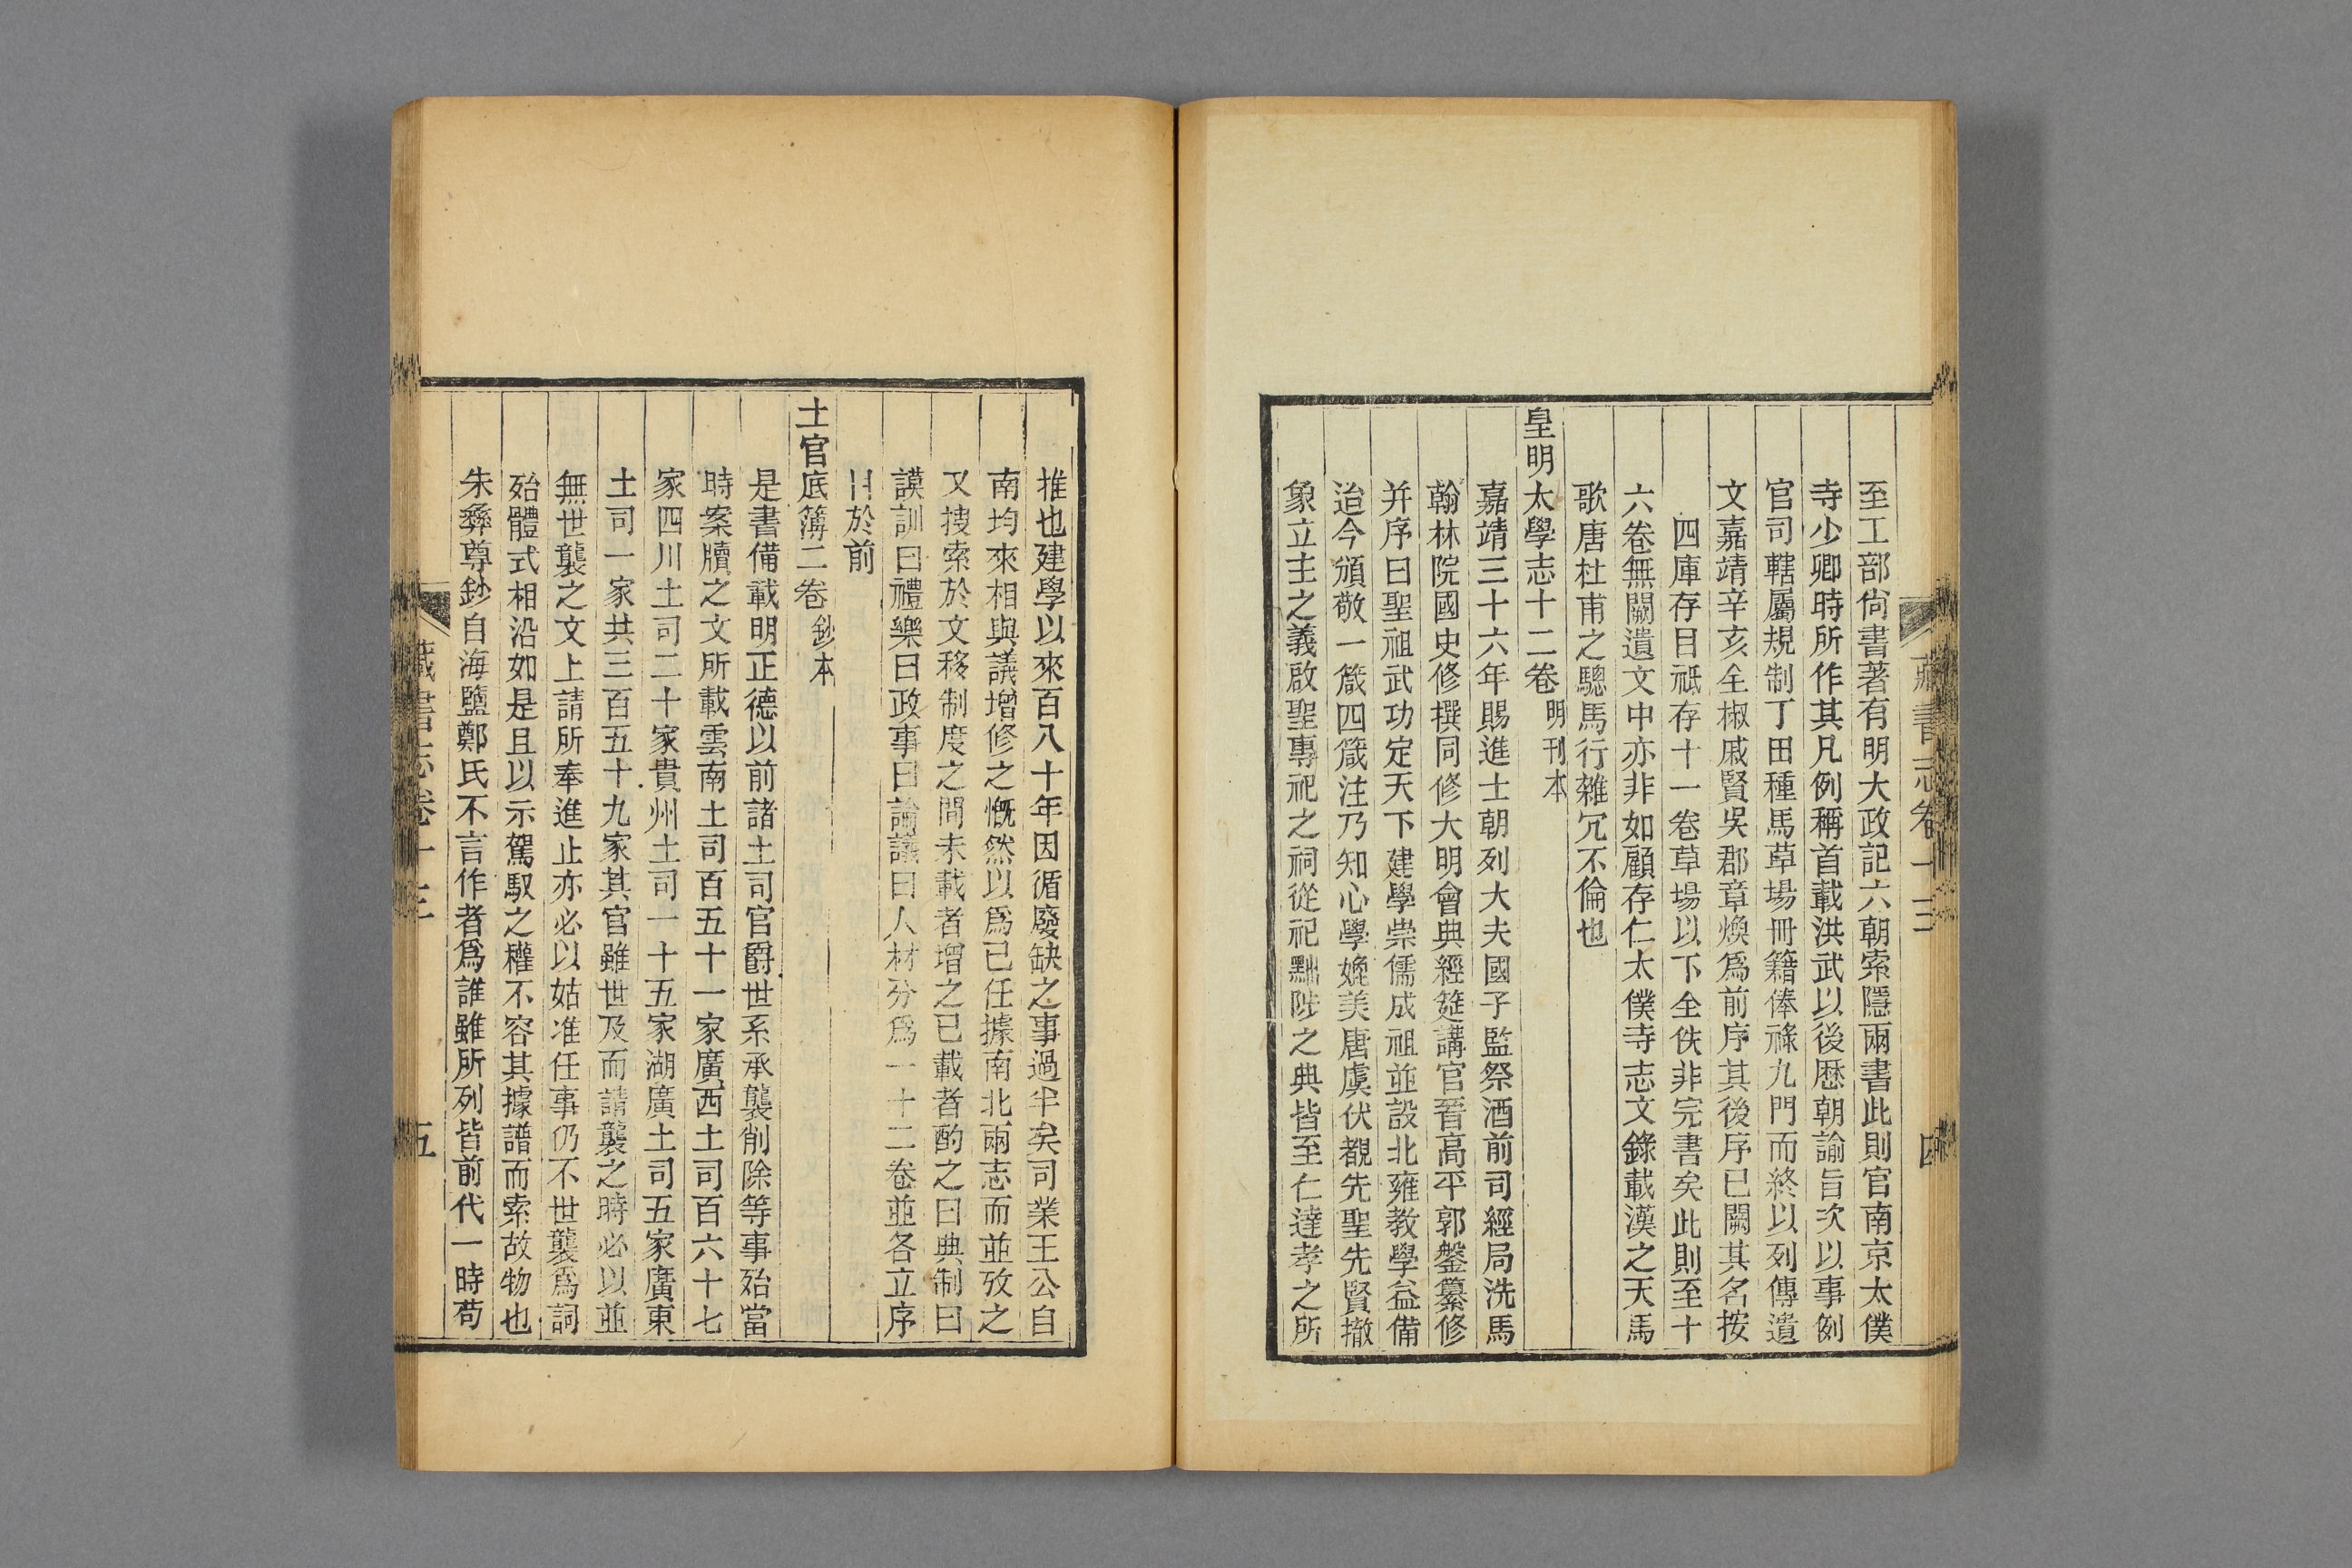 至工部尙書著有明大政記六朝索隱兩書此則官南京太僕
寺少卿時所作其凡例稱首載洪武以後歷朝諭旨次以事例
官司轄屬規制丁田種馬草場冊籍俸祿九門而終以列傳遺
文嘉靖辛亥全椒戚賢吳郡章煥爲前序其後序已闕其名按
四庫存目祗存十一卷草場以下全佚非完書矣此則至十
六卷無闕遺文中亦非如顧存仁太僕寺志文錄載漢之天馬
歌唐杜甫之驄馬行雜冗不倫也
皇明太學志十二卷 明刊本
嘉靖三十六年賜進士朝列大夫國子監祭酒前司經局洗馬
翰林院國史修撰同修大明會典經筵講官晉高平郭鎜纂修
并序曰聖祖武功定天下建學崇儒成祖並設北雍教學益備
迨今頒敬一箴四箴注乃知心學媲美唐虞伏覩先聖先賢撤
象立主之義啟聖專祀之祠從祀黜陟之典皆至仁達孝之所
藏書志卷十三
四
推也建學以來百八十年因循廢缺之事過半矣司業王公自
南均來相與議增修之慨然以爲已任據南北兩志而並攷之
又搜索於文移制度之間未載者增之已載者酌之曰典制曰
謨訓曰禮樂曰政事曰論議曰人材分爲一十二卷並各立序
目於前
土官底簿二卷 鈔本
是書備載明正德以前諸土司官爵世系承襲削除等事殆當
時案牘之文所載雲南土司百五十一家廣西土司百六十七
家四川土司二十家貴州土司一十五家湖廣土司五家廣東
土司一家共三百五十九家其官雖世及而請襲之時必以並
無世襲之文上請所奉進止亦必以姑准任事仍不世襲爲詞
殆體式相沿如是且以示駕馭之權不容其據譜而索故物也
朱彝尊鈔自海鹽鄭氏不言作者爲誰雖所列皆前代一時苟
藏書志卷十三
五